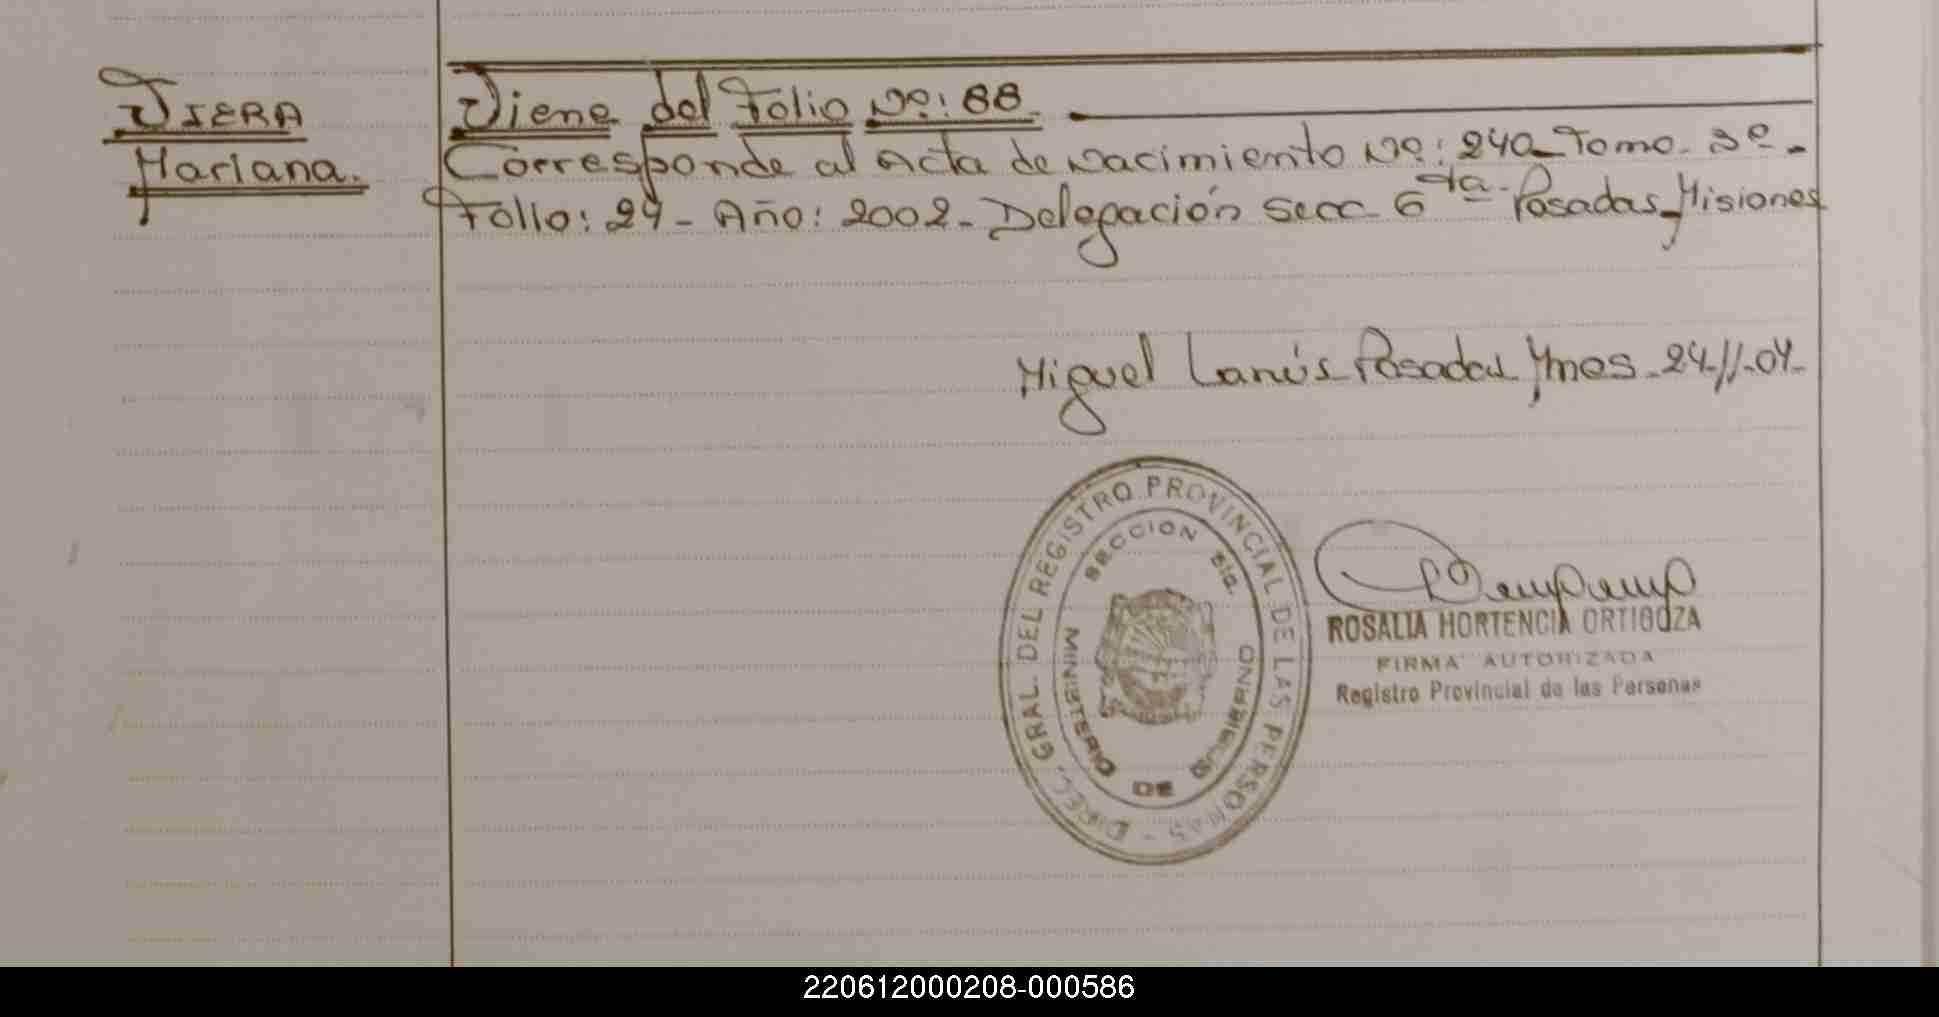 VIERA
Mariana.
Viene del Folio Nº: 88.
Corresponde al Acta de Nacimiento Nº: 240 - Tomo - 2º -
Folio: 24 - Año: 2002 - Delegación Secc - 6ta - Posadas - Misiones
Miguel Lanús Posadas Mnes - 24-11-04-
DIREC. GRAL. DEL REGISTRO PROVINCIAL DE LAS PERSONAS -
SECCION 5ta.
MINISTERIO DE GOBIERNO
ROSALIA HORTENCIA ORTIGOZA
FIRMA AUTORIZADA
Registro Provincial de las Personas
220612000208-000586